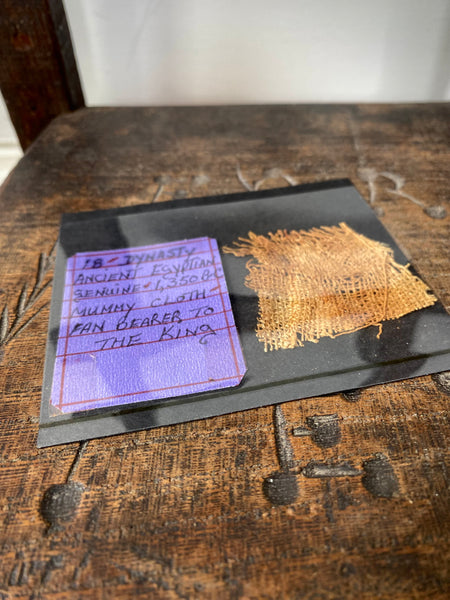 18 - DYNASTY
ANCIENT EGYPTIAN
GENUINE - 1,350 B.C
MUMMY CLOTH -
FAN BEARER TO
THE KING